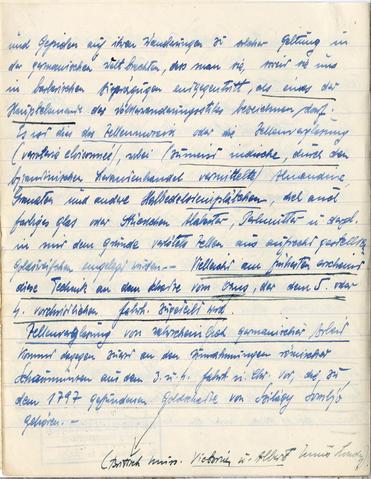 und Gepiden auf ihren Wanderungen zu solcher Geltung in
der germanischen Welt brachten, das man sie, wenn sie uns
in barbarischen Ausprägungen entgegentritt, als eines der
Hauptelemente des Völkerwanderungsstiles bezeichnen darf.
Es ist dies das Zellenwerk oder die Zellenverglasung
(verroterie cloisonnée), wobei (zumeist indische, durch den
byzantinischen Karawanenhandel vermittelte) Almandine,
Granaten und andre Halbedelsteinplättchen, doch auch
farbiges Glas oder Stückchen Alabaster, Perlmutter u. dergl.
in mit dem Grunde verlötete Zellen aus aufrecht gestellten
Goldstreifchen eingelegt wurden. — Vielleicht am frühesten erscheint
diese Technik an dem Schatze vom Oxus, der dem 5. oder
4. vorchristlichen Jahrh. zugeteilt wird.
Zellenverglasung von wahrscheinlich germanischer Arbeit
kommt dagegen zuerst an den Umrahmungen römischer
Schaumünzen aus dem 3. u. 4. Jahrh. n. Chr. vor, die zu
dem 1797 gefundenen Goldschatze von Szilagy Somlyo
gehören. —
(British Mus. Victoria u. Albert